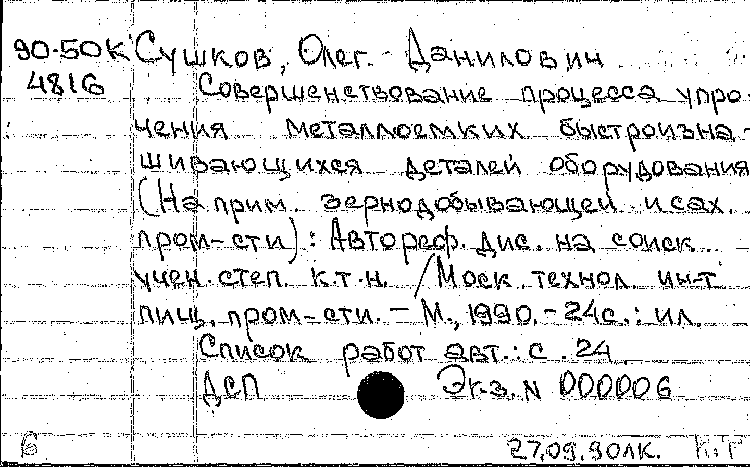 90-50К Сушков, Олег Данилович
4816 Совершенствование процесса упро-
чения металлоемких быстроизна-
шивающихся деталей оборудования
(На прим. зернодобывающей и сах.
пром-сти): Автореф. дис. на соиск.
учен. степ. к.т.н. / Моск. технол. ин-т
пищ. пром-сти. - М., 1990. - 24с.: ил.
Список работ авт.: с. 24
ДСП Экз. N 000006
6 27.09.90ЛК. К.Т